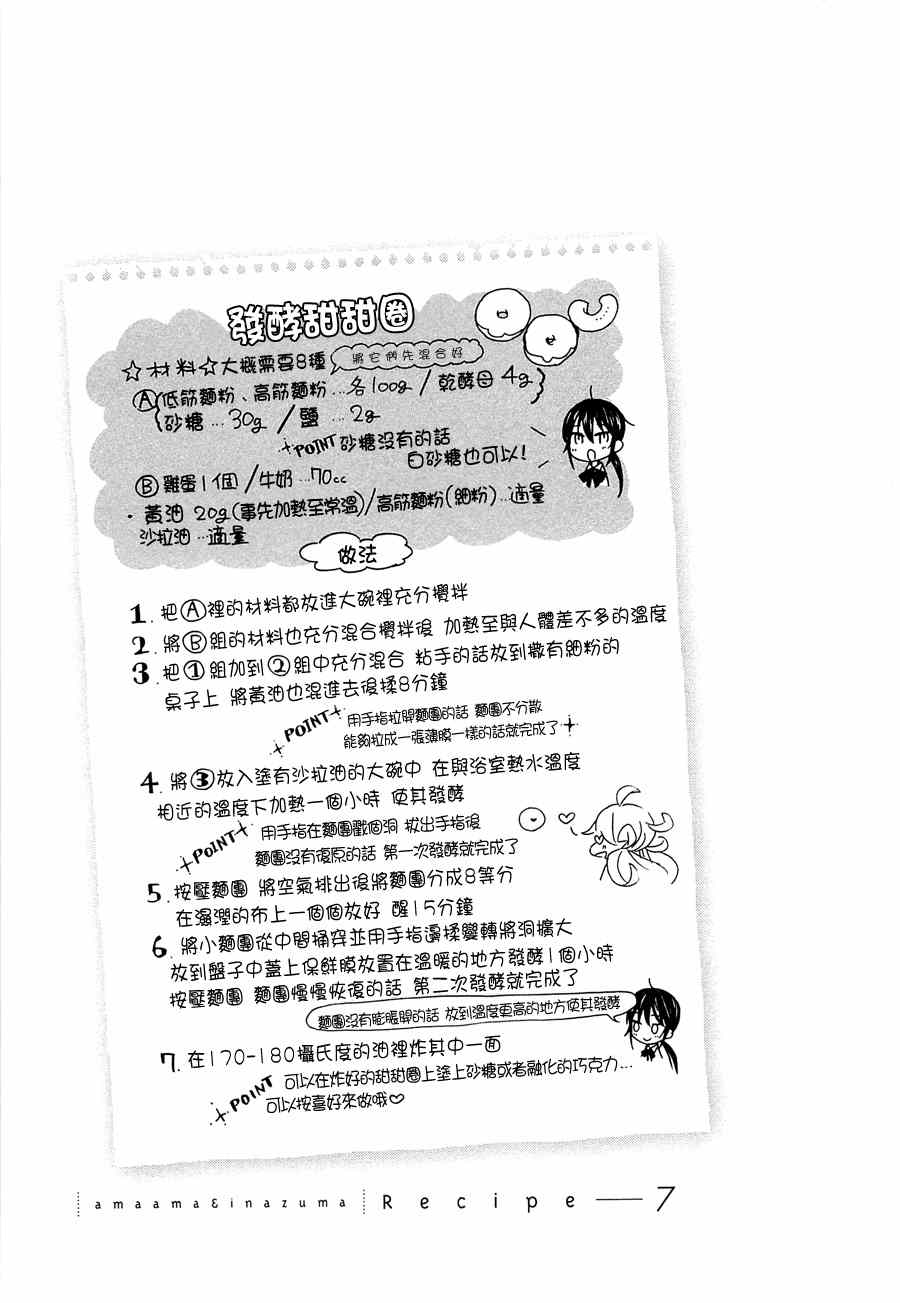 發酵甜甜圈
☆材料☆大概需要8種
將它們先混合好
Ⓐ低筋麵粉、高筋麵粉…各100g/乾酵母 4g
砂糖…30g/鹽…2g
POINT 砂糖沒有的話
白砂糖也可以!
Ⓑ雞蛋1個/牛奶…70cc
・黃油 20g(事先加熱至常溫)/高筋麵粉(細粉)…適量
沙拉油…適量
做法
1. 把Ⓐ裡的材料都放進大碗裡充分攪拌
2. 將Ⓑ組的材料也充分混合攪拌後 加熱至與人體差不多的溫度
3. 把①組加到②組中充分混合 粘手的話放到撒有細粉的
桌子上 將黃油也混進去後揉8分鐘
POINT 用手指拉開麵團的話 麵團不分散
能夠拉成一張薄膜一樣的話就完成了
4. 將③放入塗有沙拉油的大碗中 在與浴室熱水溫度
相近的溫度下加熱一個小時 使其發酵
POINT 用手指在麵團戳個洞 拔出手指後
麵團沒有復原的話 第一次發酵就完成了
5. 按壓麵團 將空氣排出後將麵團分成8等分
在濕潤的布上一個個放好 醒15分鐘
6. 將小麵團從中間捅穿並用手指邊揉變轉將洞擴大
放到盤子中蓋上保鮮膜放置在溫暖的地方發酵1個小時
按壓麵團 麵團慢慢恢復的話 第二次發酵就完成了
麵團沒有膨脹開的話 放到溫度更高的地方使其發酵
7. 在170-180攝氏度的油裡炸其中一面
POINT 可以在炸好的甜甜圈上塗上砂糖或者融化的巧克力…
可以按喜好來做哦♡
amaama&inazuma Recipe — 7